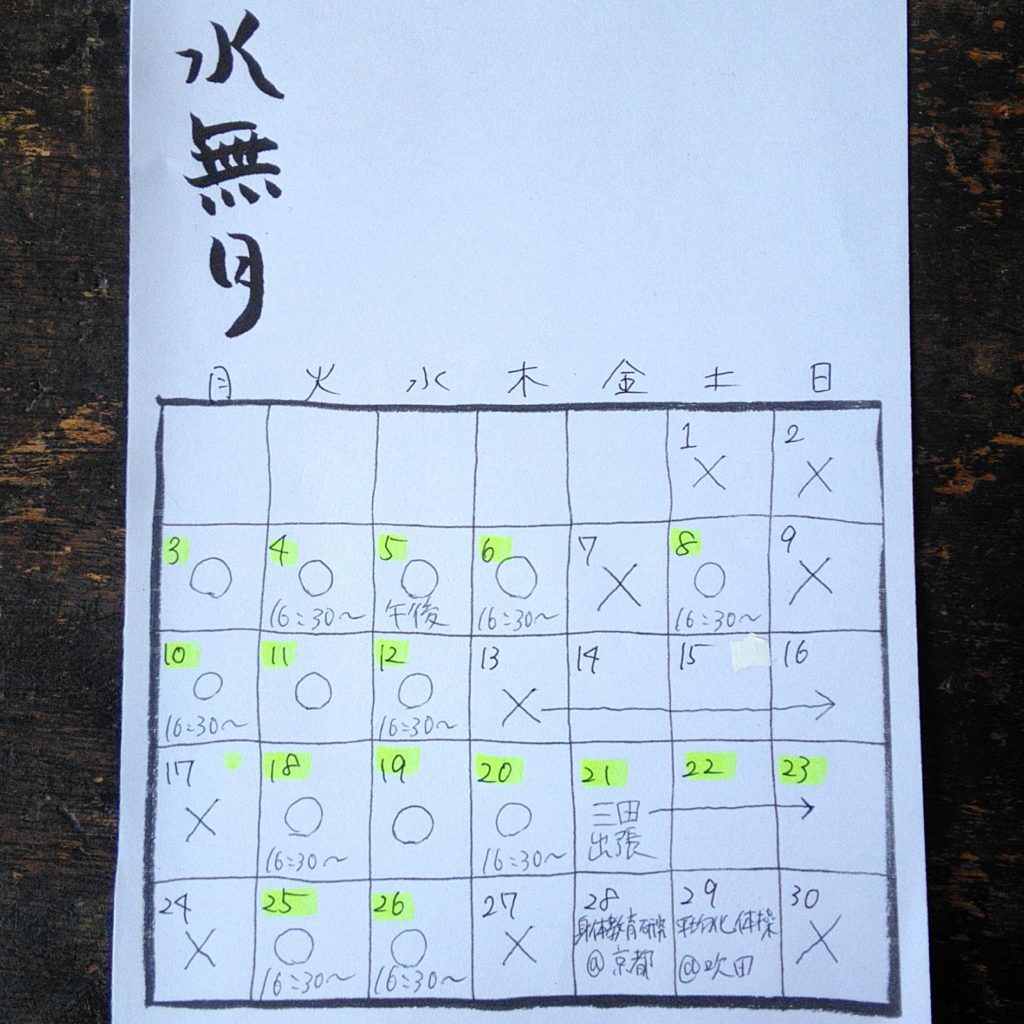 水無月
月 火 水 木 金 土 日
1 2
× ×
3 4 5 6 7 8 9
○ ○ ○ ○ × ○ ×
16:30〜 午後 16:30〜 16:30〜
10 11 12 13 14 15 16
○ ○ ○ × →
16:30〜 16:30〜
17 18 19 20 21 22 23
× ○ ○ ○ 三田 →
16:30〜 16:30〜 出張
24 25 26 27 28 29 30
× ○ ○ × 身体教育研究 体操 ×
16:30〜 16:30〜 @京都 @吹田